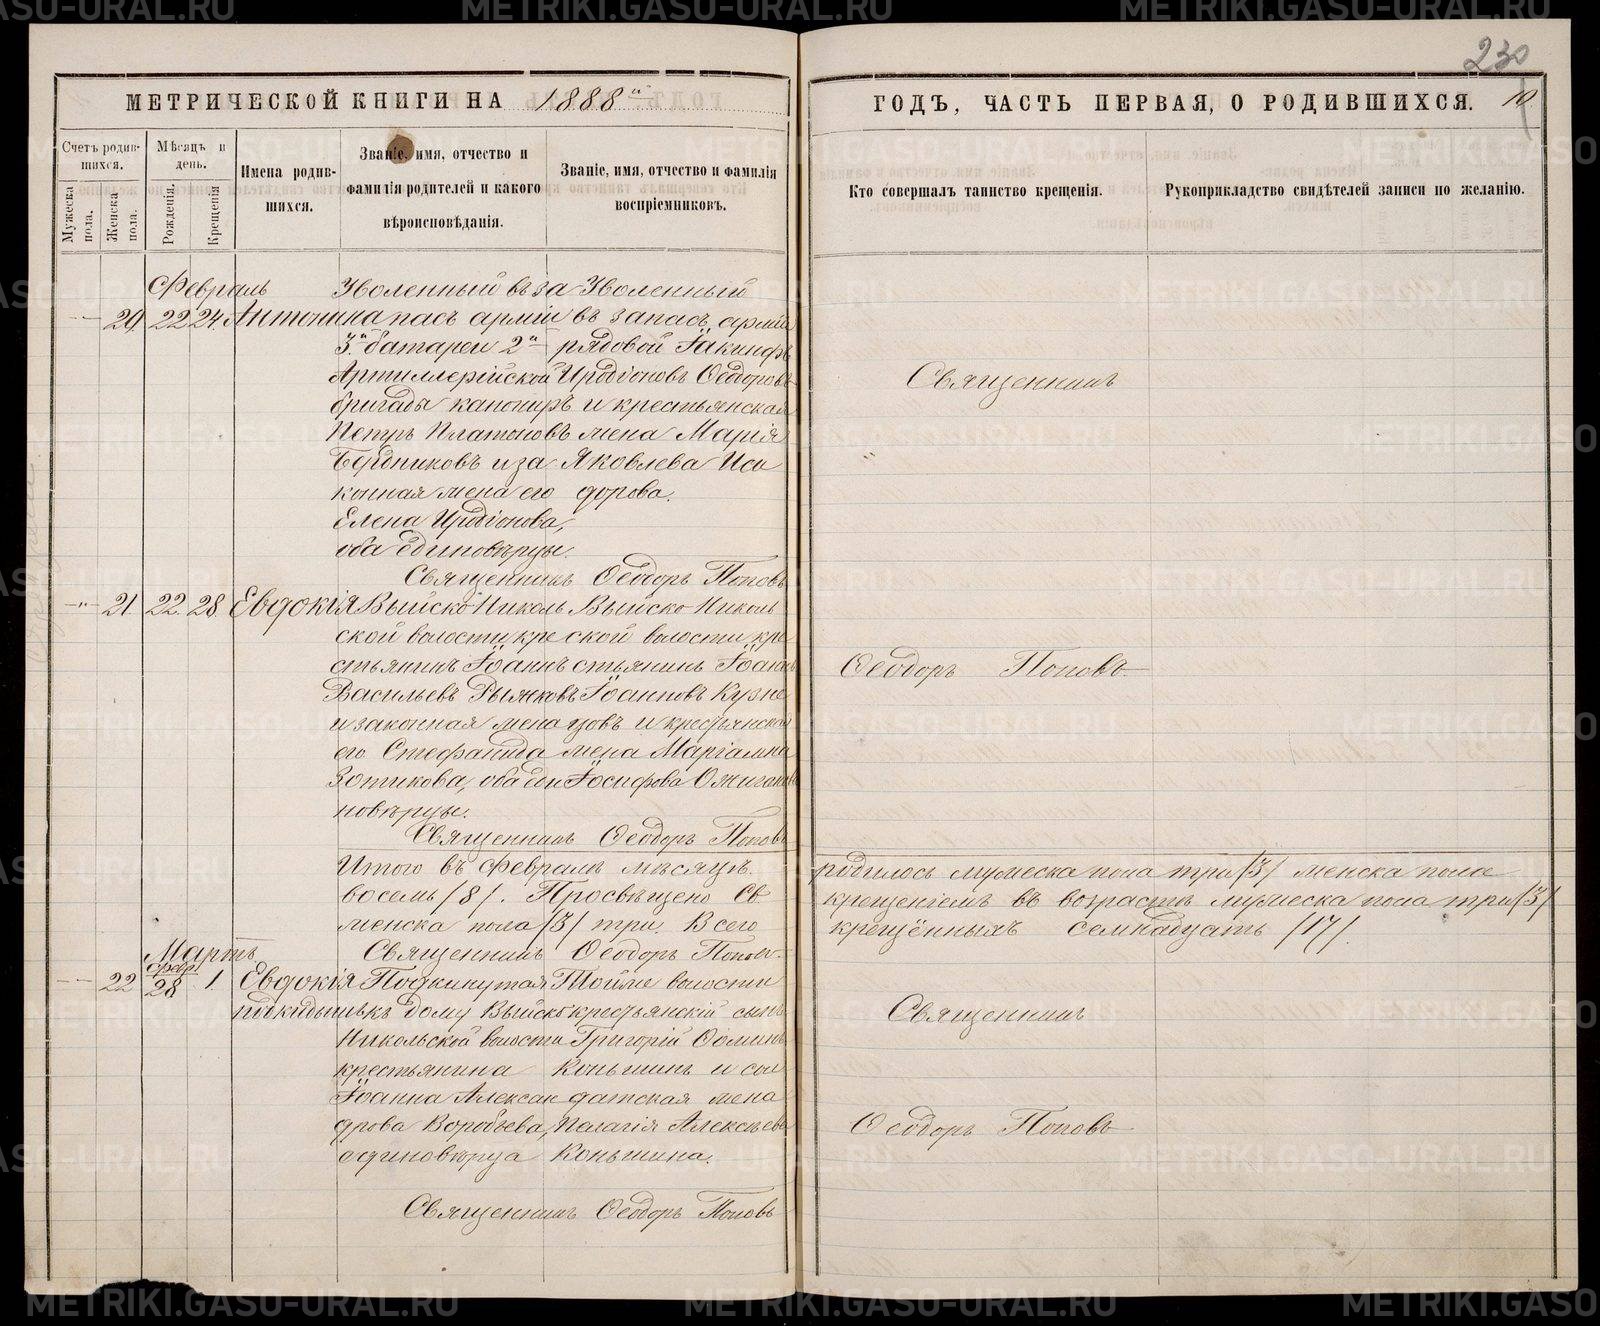 METRIKI.GASO-URAL.RU
230
МЕТРИЧЕСКОЙ КНИГИ НА 1888 й
ГОДЪ, ЧАСТЬ ПЕРВАЯ, О РОДИВШИХСЯ. 10
Счетъ родившихся.
Мужеска пола.
Женска пола.
Мѣсяцъ и день.
Рожденія.
Крещенія
Имена родившихся.
Званіе, имя, отчество и фамилія родителей и какого вѣроисповѣданія.
Званіе, имя, отчество и фамилія воспріемниковъ.
Кто совершалъ таинство крещенія.
Рукоприкладство свидѣтелей записи по желанію.
Февраль
20. 22 24. Антонина
Уволенный въ за
пасъ арміи
3й батареи 2й
Артиллерійской
бригады каниръ
Петръ Платоновъ
Бердниковъ и за
конная жена его
Елена Иродіонова,
оба единовѣрцы.
Уволенный
въ запасъ арміи
рядовой Іакинфъ
Иродіоновъ Ѳедоровъ
и крестьянская
жена Марія
Яковлева Иси
дорова.
Священникъ
Священникъ Ѳеодоръ Поповъ
21. 22. 28. Евдокія
Выйско-Николь
ской волости кре
стьянинъ Іоаннъ
Васильевъ Рыжковъ
и законная жена
его Стефанида
Зотикова, оба еди
новѣрцы.
Выйско-Николь
ской волости кре
стьянинъ Іоаннъ
Іоанновъ Кузне
цовъ и крестьянская
жена Маріамна
Іосифова Ожиганова
Ѳеодоръ Поповъ
Священникъ Ѳеодоръ Поповъ
Итого въ Февралѣ мѣсяцѣ родилось мужеска пола три /3/ женска пола
восемь /8/. Просвѣщено Св. крещеніемъ въ возрастѣ мужеска пола три /3/
женска пола /3/ три. Всего крещённыхъ семнадцать /17/.
Священникъ Ѳеодоръ Поповъ
Мартъ
22 Февр. 28 1 Евдокія
подкидышъ
Подкинутая
къ дому Выйско
Никольской волости
крестьянина
Іоанна Алексан
дрова Воробьева,
единовѣрца
Тойже волости
крестьянскій сынъ
Григорій Ѳоминъ
Коньшинъ и сол
датская жена
Пелагія Алексѣева
Коньшина.
Священникъ
Ѳеодоръ Поповъ
Священникъ Ѳеодоръ Поповъ